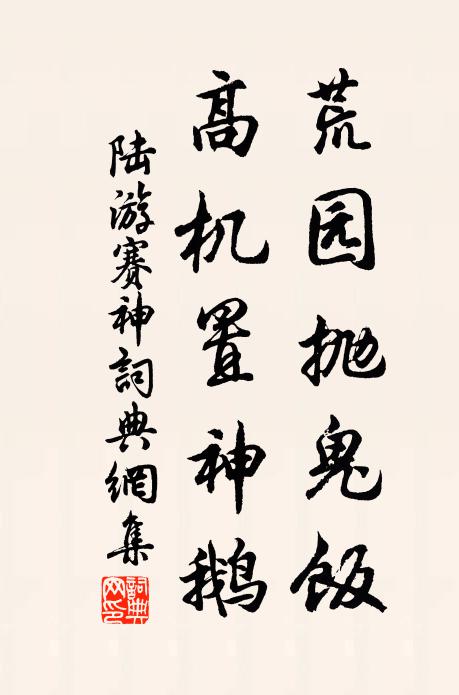 荒园抛鬼饭
高机置神鹅
陆游赛神詞典網集
詞典网印